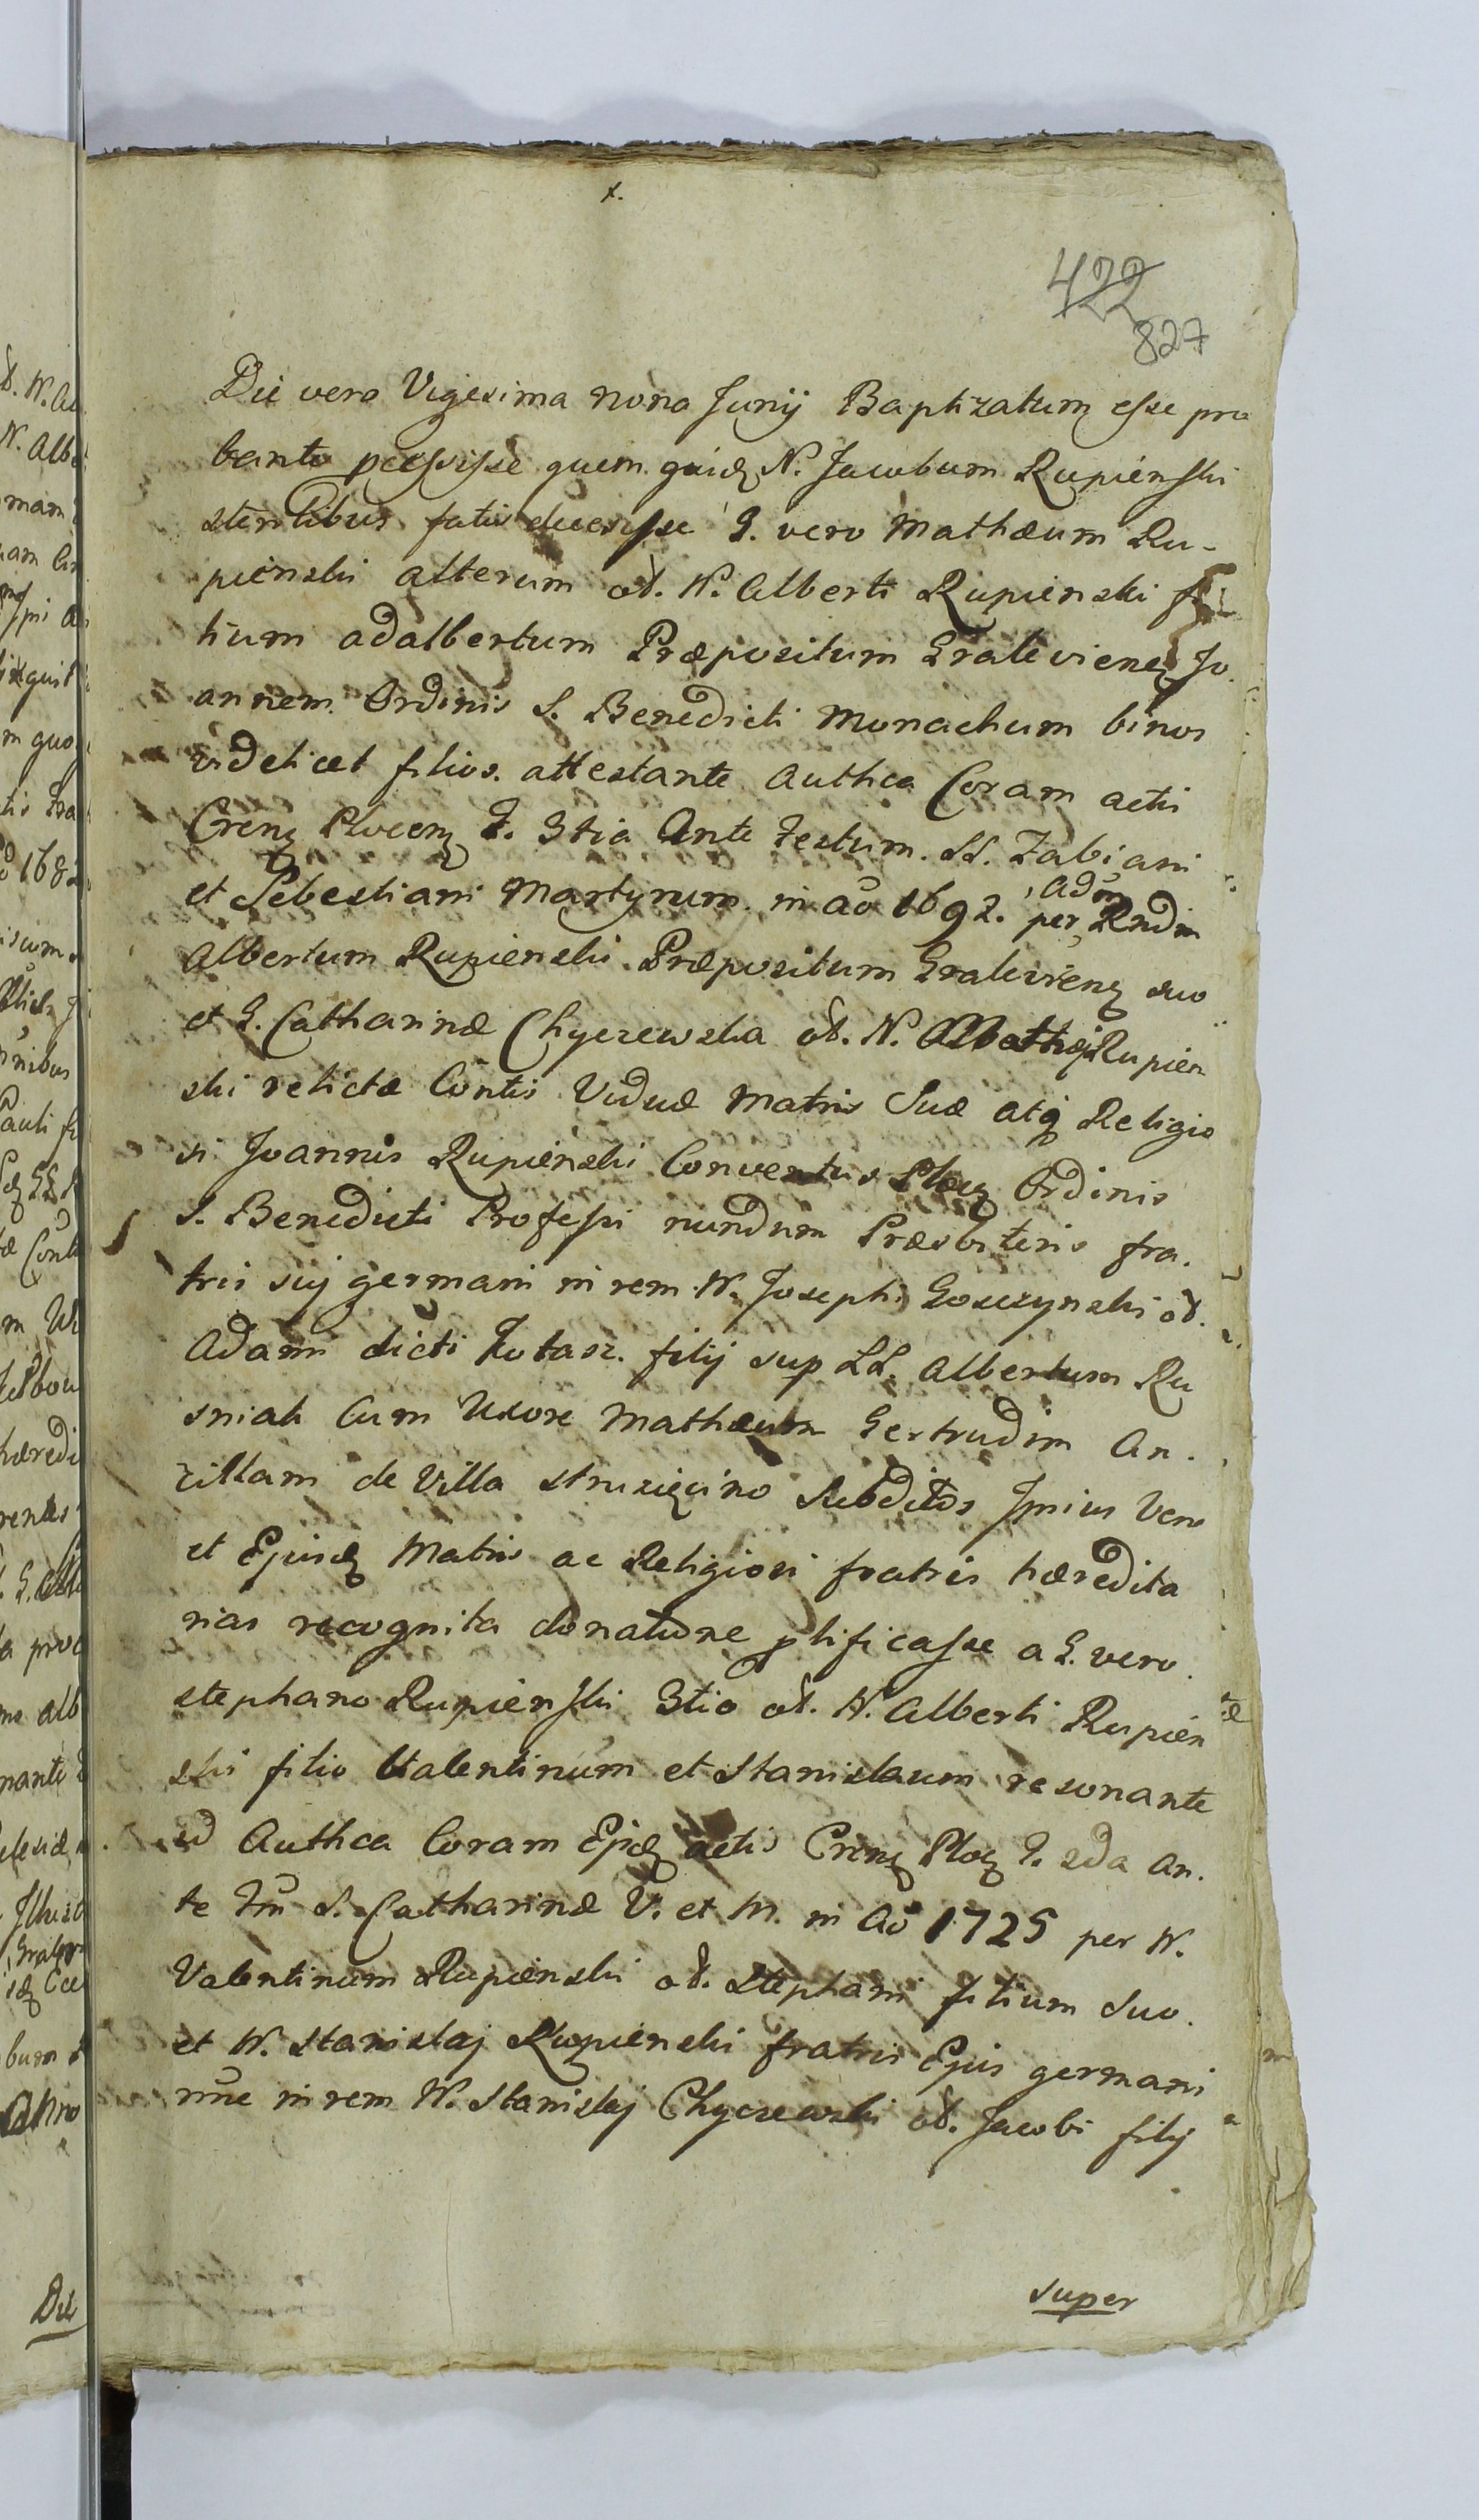 x.
422
827
Die vero Vigesima nona Junij Baptizatum esse pro
bante processisse quem quidẽ N. Jacobum Rupienski
sterilibus fatis decessisse G. vero Mathæum Ru-
pienski alterum ol. N. Alberti Rupienski fi
lium Adalbertum Præpositum Gralevienẽ Jo.
annem Ordinis S. Benedicti Monachum binos
videlicet filios. attestante Authca Coram actis
Crenẽ Plocenẽ F. 3tia Ante Festum. SS. Fabiani
et Sebestiani Martyrum in aõ 1692. per Admõ Rndm
Albertum Rupienski Præpositum Gralevienẽ suo
et G. Catharinæ Chyczewska ol. N. Mathæi Rupien
ski relictæ Contis Viduæ Matris Suæ atq Religio
si Joannis Rupienski Conventus Plocẽ Ordinis
S. Benedicti Professi nundum Præsbiteris fra.
tris sui germani in rem N. Josephi Goszczynski ol.
Adami dicti Kutasz. filij sup LL. Albertum Ru
sniak Cum Uxore Mathæum Gertrudim An.
cillam de Villa Struzięcino Subditos Ipsius Vero
et Ejusdẽ Matris ac Religiosi fratris hæredita
rias recognita donatione ptificasse a G. vero
Stephano Rupienski 3tio ol. N. Alberti Rupien
ski filio Valentinum et Stanislaum resonante
id Authca Coram Ejsdẽ actis Crenẽ Plocẽ F. 2da An.
te Fm̃ S. Catharinæ V. et M. in Aõ 1725 per N.
Valentinum Rupienski ol. Stephani filium suo.
et N. Stanislaj Rupienski fratris Ejus germani
nñe in rem N. Stanislaj Chyczewski ol. Jacobi filij
super